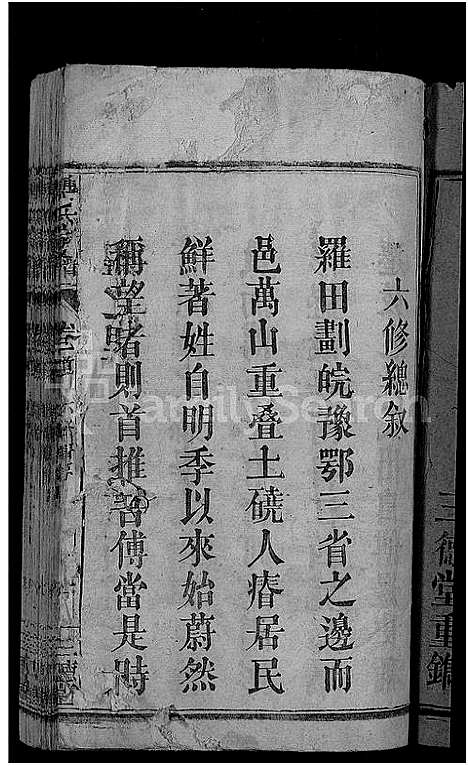 三德堂重鐫
六修總敘
羅田劃皖豫鄂三省之邊而
邑萬山重叠土磽人瘠居民
鮮著姓自明季以來始蔚然
稱望者則首推吾傅當是時
FamilySearch